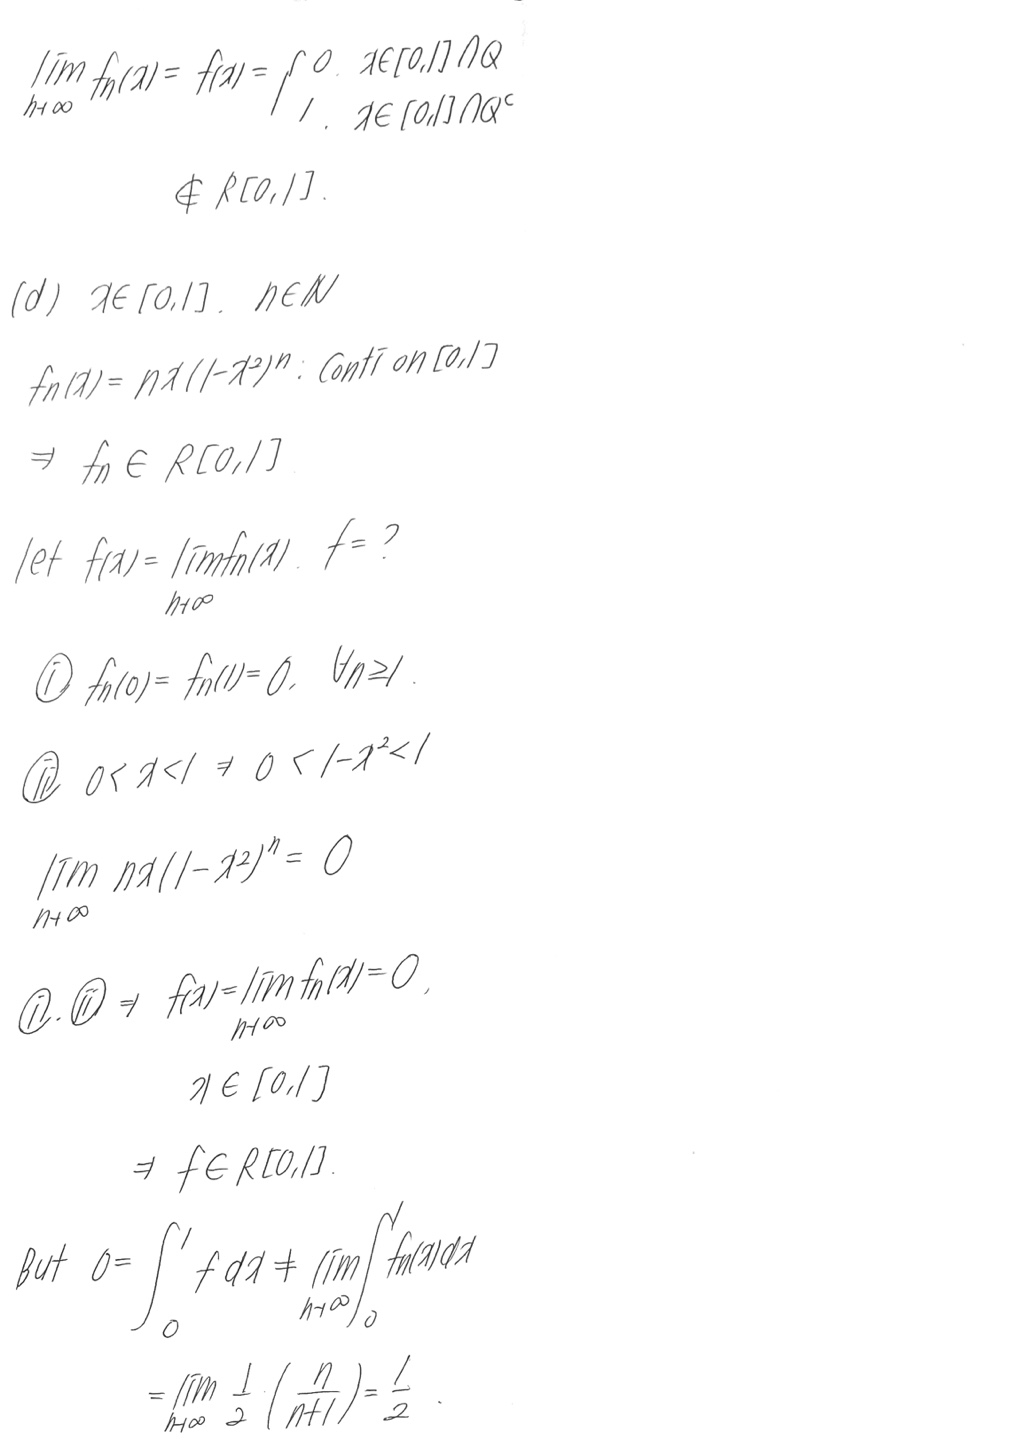 lim fn(x) = f(x) = { 0. x∈[0,1]∩Q
n→∞ 1. x∈[0,1]∩Qᶜ
∉ R[0,1].
(d) x∈[0,1]. n∈N
fn(x) = nx(1-x²)ⁿ : Conti on [0,1]
⇒ fn ∈ R[0,1]
let f(x) = lim fn(x). f = ?
n→∞
ⓘ fn(0) = fn(1) = 0. ∀n≥1.
ⓘⓘ 0 < x < 1 ⇒ 0 < 1-x² < 1
lim nx(1-x²)ⁿ = 0
n→∞
ⓘ. ⓘⓘ ⇒ f(x) = lim fn(x) = 0,
n→∞
x ∈ [0,1]
⇒ f∈R[0,1].
But 0 = ∫₀¹ f dx ≠ lim ∫₀¹ fn(x)dx
n→∞
= lim 1/2 (n/(n+1)) = 1/2.
n→∞